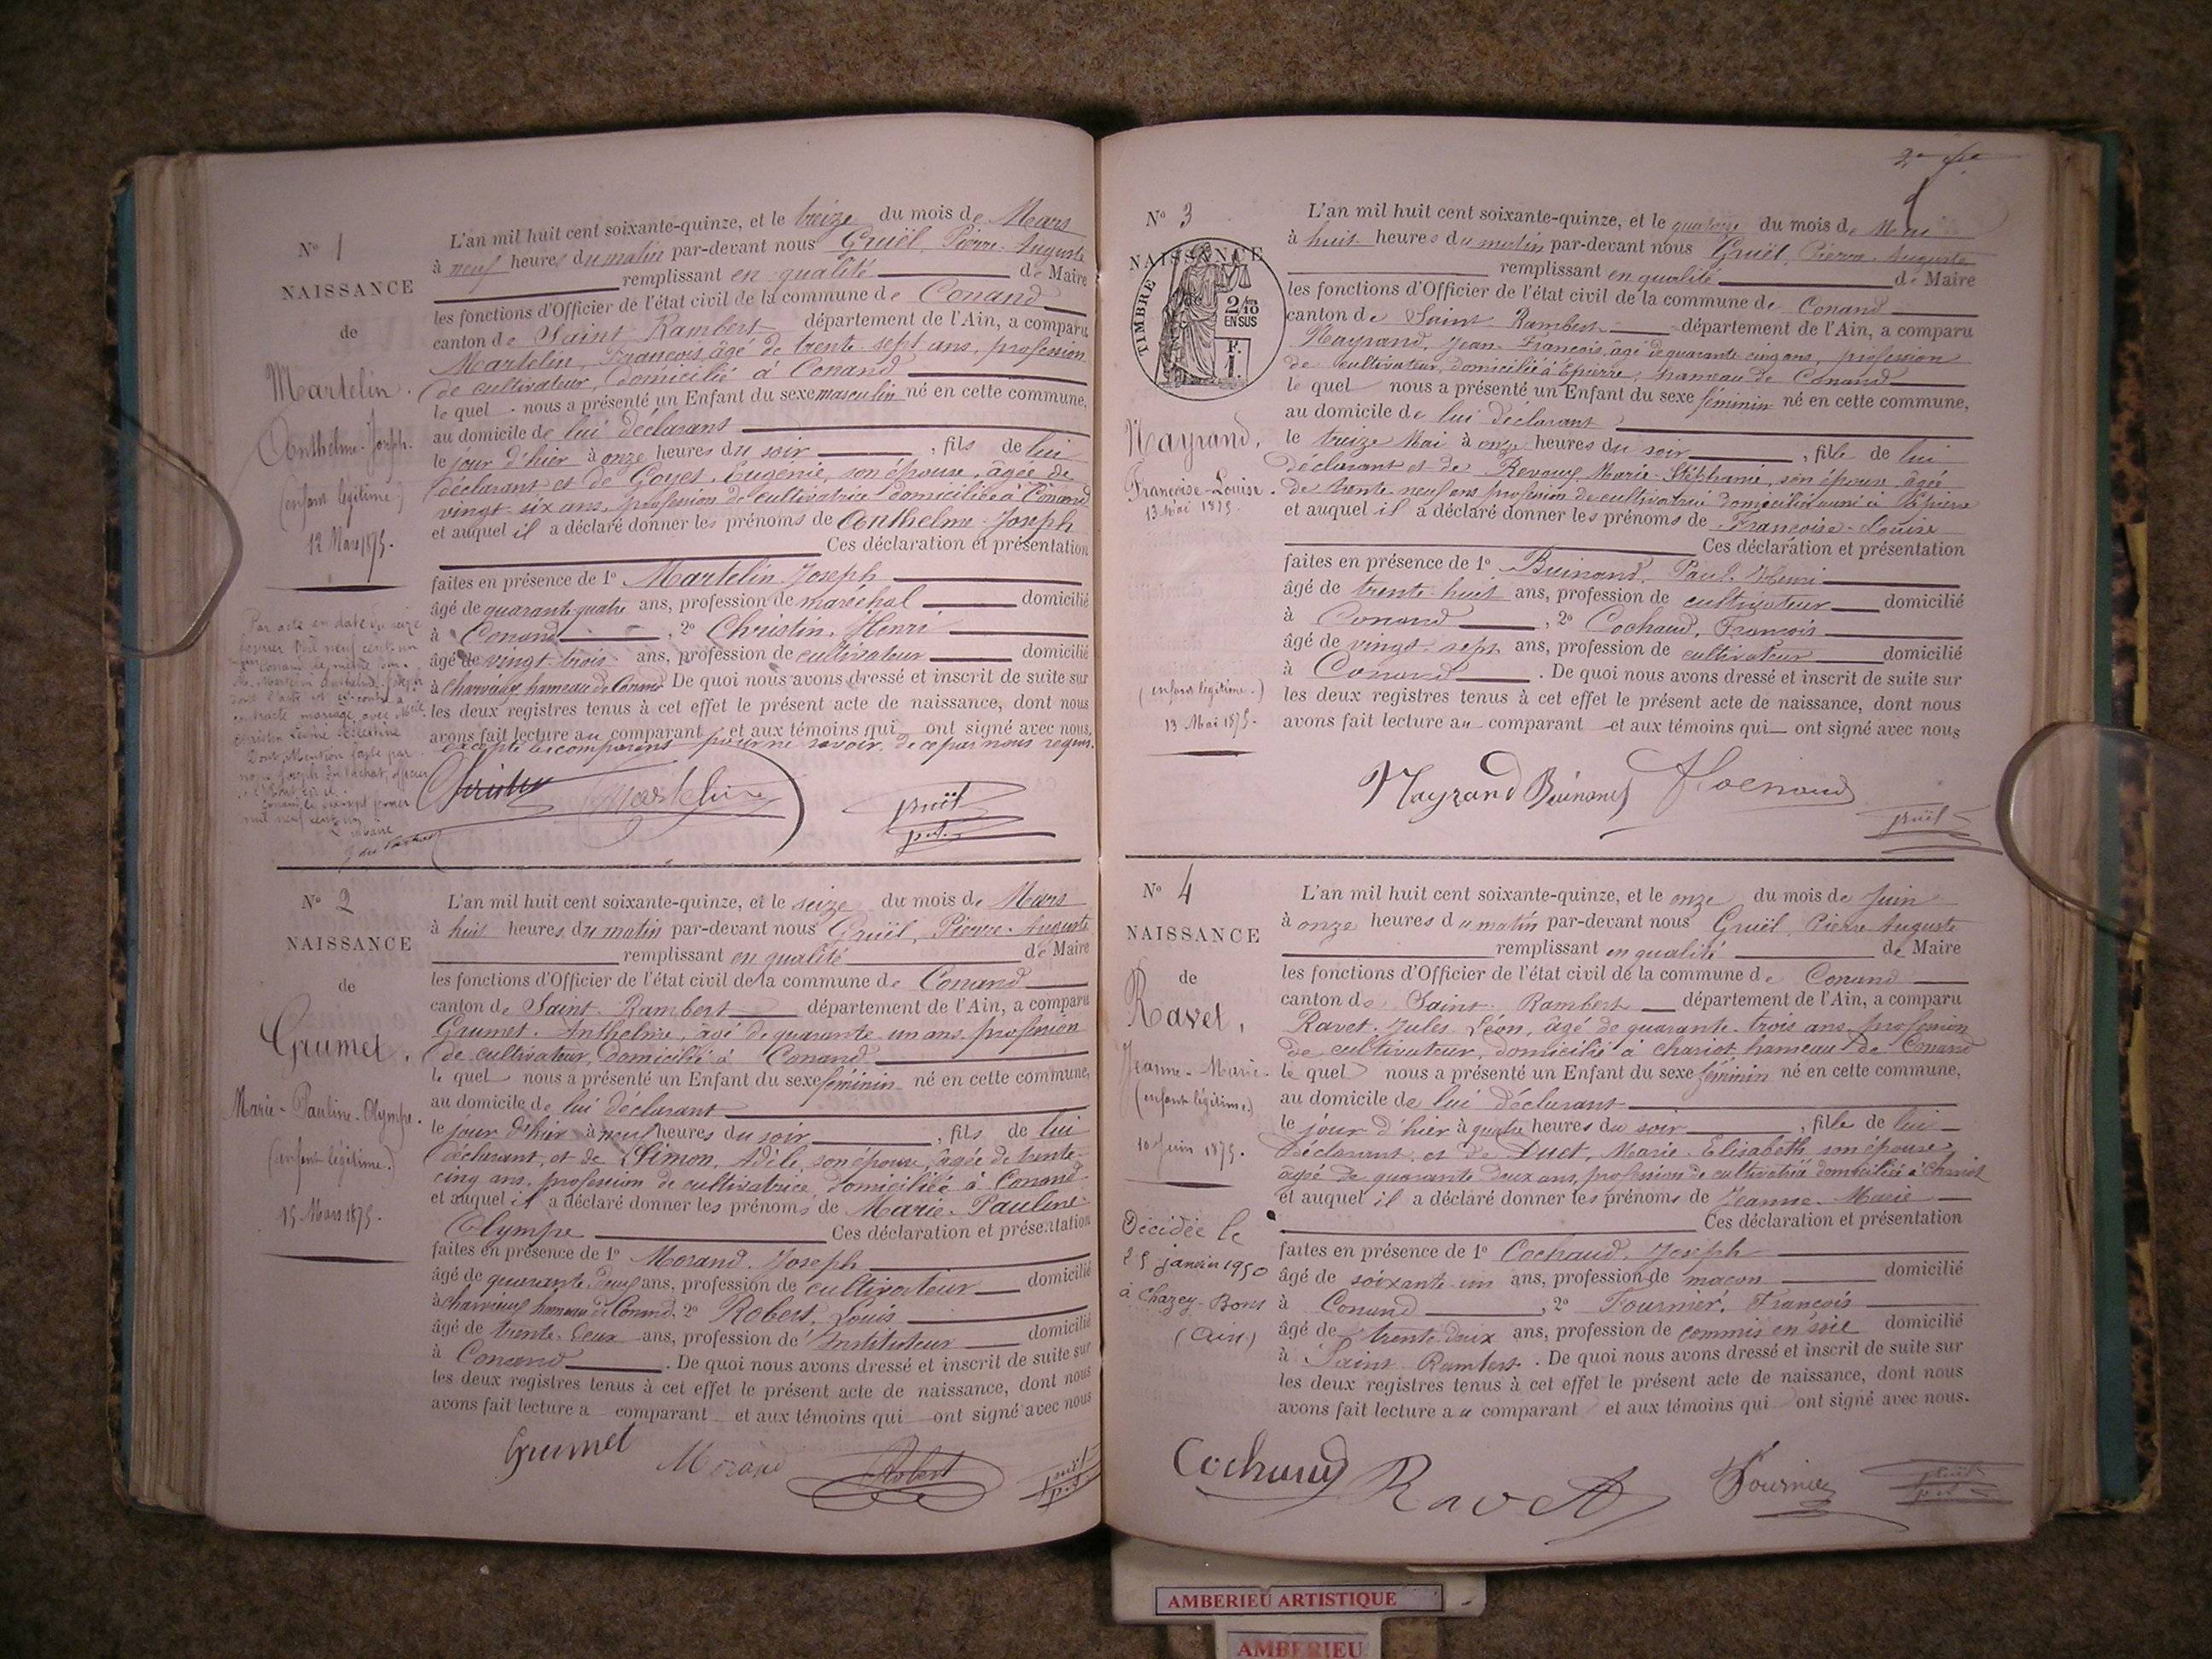 N° 1
NAISSANCE
de
Martelin.
Anthelme-Joseph.
(enfant légitime)
12 Mars 1875.
Par acte en date du seize
février mil neuf cent un
Conand
dont l'acte est ci-contre a
contracté mariage avec Melle
Dont Mention faite par
nous Joseph officier
mil neuf cent un
Le Maire
L'an mil huit cent soixante-quinze, et le treize du mois de Mars
à neuf heures du matin par-devant nous Gruël, Pierre-Auguste
remplissant en qualité de Maire
les fonctions d'Officier de l'état civil de la commune de Conand
canton de Saint Rambert département de l'Ain, a comparu
Martelin, François, âgé de trente sept ans, profession
de cultivateur, domicilié à Conand
lequel nous a présenté un Enfant du sexe masculin né en cette commune,
au domicile de lui déclarant
le jour d'hier à onze heures du soir, fils de lui
déclarant et de Goyet, Eugénie, son épouse, âgée de
vingt-six ans, profession de cultivatrice domiciliée à Conand
et auquel il a déclaré donner les prénoms de Anthelme-Joseph
Ces déclaration et présentation
faites en présence de 1° Martelin Joseph
âgé de quarante quatre ans, profession de maréchal domicilié
à Conand, 2° Christin, Henri
âgé de vingt-trois ans, profession de cultivateur domicilié
à Charvieux hameau de Conand De quoi nous avons dressé et inscrit de suite sur
les deux registres tenus à cet effet le présent acte de naissance, dont nous
avons fait lecture au comparant et aux témoins qui ont signé avec nous,
excepté le comparant pour ne savoir, de ce par nous requis.
Christin Martelin Gruël
N° 2
NAISSANCE
de
Grumet.
Marie-Pauline-Olympe.
(enfant légitime.)
15 Mars 1875.
L'an mil huit cent soixante-quinze, et le seize du mois de Mars
à huit heures du matin par-devant nous Gruël, Pierre-Auguste
remplissant en qualité de Maire
les fonctions d'Officier de l'état civil de la commune de Conand
canton de Saint-Rambert département de l'Ain, a comparu
Grumet, Anthelme, âgé de quarante un ans, profession
de cultivateur, domicilié à Conand
lequel nous a présenté un Enfant du sexe féminin né en cette commune,
au domicile de lui déclarant
le jour d'hier à neuf heures du soir, fils de lui
déclarant, et de Simon, Adèle, son épouse, âgée de trente-
cinq ans, profession de cultivatrice, domiciliée à Conand
et auquel il a déclaré donner les prénoms de Marie-Pauline-
Olympe Ces déclaration et présentation
faites en présence de 1° Morand, Joseph
âgé de quarante deux ans, profession de cultivateur domicilié
à Charvieux hameau de Conand, 2° Robert, Louis
âgé de trente-deux ans, profession d'Instituteur domicilié
à Conand. De quoi nous avons dressé et inscrit de suite sur
les deux registres tenus à cet effet le présent acte de naissance, dont nous
avons fait lecture a comparant et aux témoins qui ont signé avec nous
Grumet Morand Robert Gruël
N° 3
NAISSANCE
TIMBRE
2/10
EN SUS
F.
1.
Nayrand,
Françoise-Louise.
13 Mai 1875.
(enfant légitime.)
13 Mai 1875.
L'an mil huit cent soixante-quinze, et le quatorze du mois de Mai
à huit heures du matin par-devant nous Gruël, Pierre-Auguste
remplissant en qualité de Maire
les fonctions d'Officier de l'état civil de la commune de Conand
canton de Saint-Rambert département de l'Ain, a comparu
Nayrand, Jean-François, âgé de quarante-cinq ans, profession
de cultivateur, domicilié à Epierre, hameau de Conand
lequel nous a présenté un Enfant du sexe féminin né en cette commune,
au domicile de lui déclarant
le treize Mai à onze heures du soir, fille de lui
déclarant et de Revoux, Marie-Stéphanie, son épouse, âgée
de trente-neuf ans profession de cultivatrice domiciliée aussi à Epierre
et auquel il a déclaré donner les prénoms de Françoise-Louise
Ces déclaration et présentation
faites en présence de 1° Buinand, Paul
âgé de trente-huit ans, profession de cultivateur domicilié
à Conand, 2° Cochaud, François
âgé de vingt-sept ans, profession de cultivateur domicilié
à Conand. De quoi nous avons dressé et inscrit de suite sur
les deux registres tenus à cet effet le présent acte de naissance, dont nous
avons fait lecture au comparant et aux témoins qui ont signé avec nous
Nayrand Buinand Gruël
N° 4
NAISSANCE
de
Ravet,
Jeanne-Marie.
(enfant légitime.)
10 Juin 1875.
Décédée le
25 janvier 1950
à Chazey-Bons
(Ain)
L'an mil huit cent soixante-quinze, et le onze du mois de Juin
à onze heures du matin par-devant nous Gruël, Pierre Auguste
remplissant en qualité de Maire
les fonctions d'Officier de l'état civil de la commune de Conand
canton de Saint-Rambert département de l'Ain, a comparu
Ravet, Jules Léon, âgé de quarante-trois ans, profession
de cultivateur, domicilié à Chariot hameau de Conand
lequel nous a présenté un Enfant du sexe féminin né en cette commune,
au domicile de lui déclarant
le jour d'hier à quatre heures du soir, fille de lui
déclarant et de Duet, Marie-Elisabeth, son épouse
âgée de quarante deux ans, profession de cultivatrice domiciliée à Chariot
et auquel il a déclaré donner les prénoms de Jeanne-Marie
Ces déclaration et présentation
faites en présence de 1° Cochaud, Joseph
âgé de soixante-un ans, profession de maçon domicilié
à Conand, 2° Fournier, François
âgé de trente-deux ans, profession de commis en soie domicilié
à Saint-Rambert. De quoi nous avons dressé et inscrit de suite sur
les deux registres tenus à cet effet le présent acte de naissance, dont nous
avons fait lecture au comparant et aux témoins qui ont signé avec nous.
Cochaud Ravet Fournier Gruël
AMBERIEU ARTISTIQUE
AMBERIEU